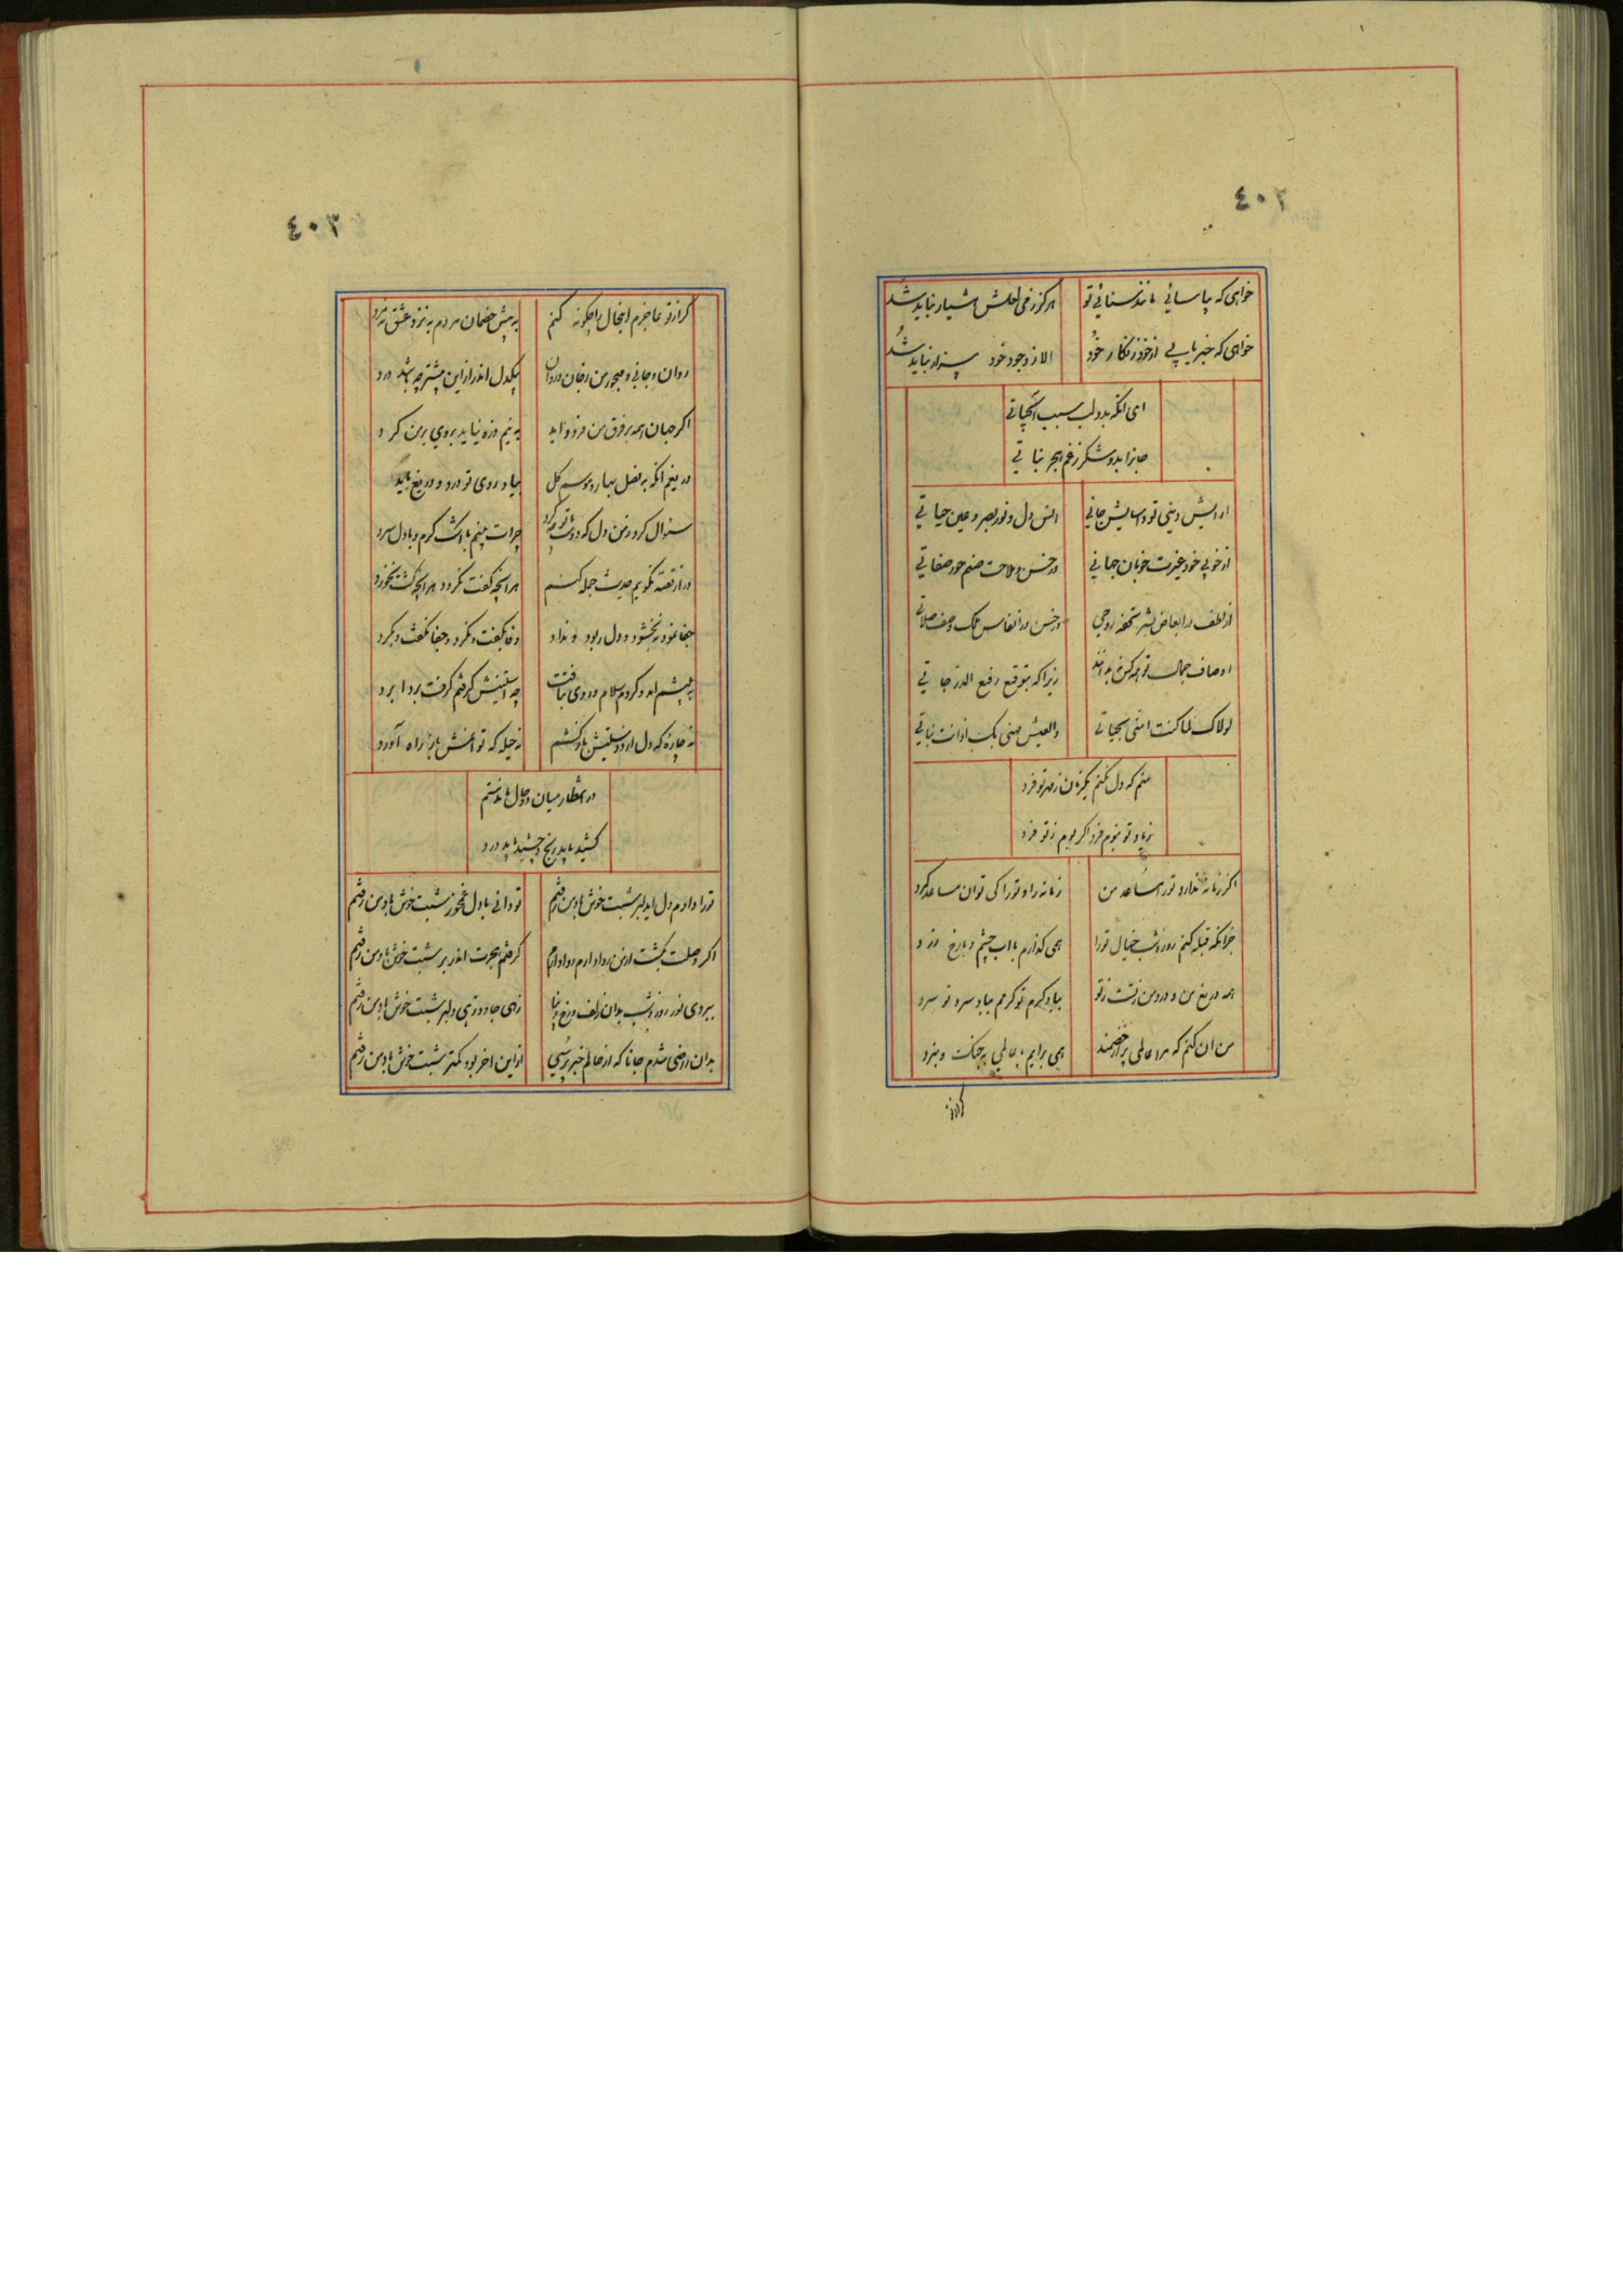 ٤٠٢
خواهی که بیاسائی مانند سنائی تو هرگز ز می لعلش هشیار نباید شد
خواهی که خبر یابی از خود ز نگار خود الا ز وجود خود بیزار نباید شد
ای آنکه بدو لب سبب آب حیاتی
جانرا بدو شکر ز غم هجر نباتی
آرایش دینی تو و آسایش جانی انس دل و نور بصر و عین حیاتی
از خوبی خود غیرت خوبان جهانی در حسن و ملاحت صنم حور صفاتی
از لطف در ابعاض بشر تحفه روحی
اوصاف جمال تو همه کس بندانند زیرا که بتوقیع رفیع الدرجاتی
لولاک لما کنت امنی بحیاتی والعیش یهنی بک اذ انت نباتی
منم که دل نکنم یکزمان ز مهر تو فرد
زیاد تو نبوم فرد اگر بوم ز تو فرد
اگر زمانه ندارد تو را مساعد من زمانه را و تو را کی توان مساعد کرد
جز آنکه قبله کنم روز و شب خیال تورا همی گذارم با آب چشم و با رخ زرد
همه دریغ من و درد من ز تست ز تو بیاد گرم تو گرمم بباد سرد تو سرد
من آن کنم که مرا عالمی پر از خصمند همی برایم با عالمی به جنک و نبرد
گر از تو
٤٠٣
گر از تو عاجزم اینحال را چگونه کنم به پیش خصمان مردم به نزد عشق نه مرد
روان و جانی و مهجور من ز جان و روان بیکدل اندر ازین بیشتر چه باشد درد
اگر جهان همه بر فرق من فرود آید به نیم ذره نیاید بروی من گرد
دریغم آنکه به فصل بهار و موسم گل بیاد روی تو درد و دریغ باید
سئوال کرد ز من دل که دوست با تو چه کرد چرات بینم با اشک گرم و با دل سرد
دراز قصه نگویم حدیث جمله کنم هر آنچه گفت نکرد و هر آنچه کشت نخورد
جفا نمود نبخشود و دل ربود و نداد وفا بگفت و نکرد و جفا نگفت و بکرد
به پیشم آمد و کردم سلام و روی بتافت چه آستینش گرفتم گرفت بردا برد
نه چاره که دل از دوستیش باز کشم نه حیله که توانمش باز راه آورد
در انتظار میان دو حال ماندستم
کشید باید رنج و چشید باید درد
تورا دارم دل ای دلبر شبت خوش باد من رفتم تو دانی با دل غمخور شبت خوش باد من رفتم
اگر وصلت بگشت از من روا دارم روا دارم گرفتم هجرت اندر بر شبت خوش باد من رفتم
ببردی نور روز و شب بدان زلف و رخ زیبا زهی جادو زهی دلبر شبت خوش باد من رفتم
بدان راضی شدم جانا که از حالم خبر پرسی ازین آخر بود کمتر شبت خوش باد من رفتم